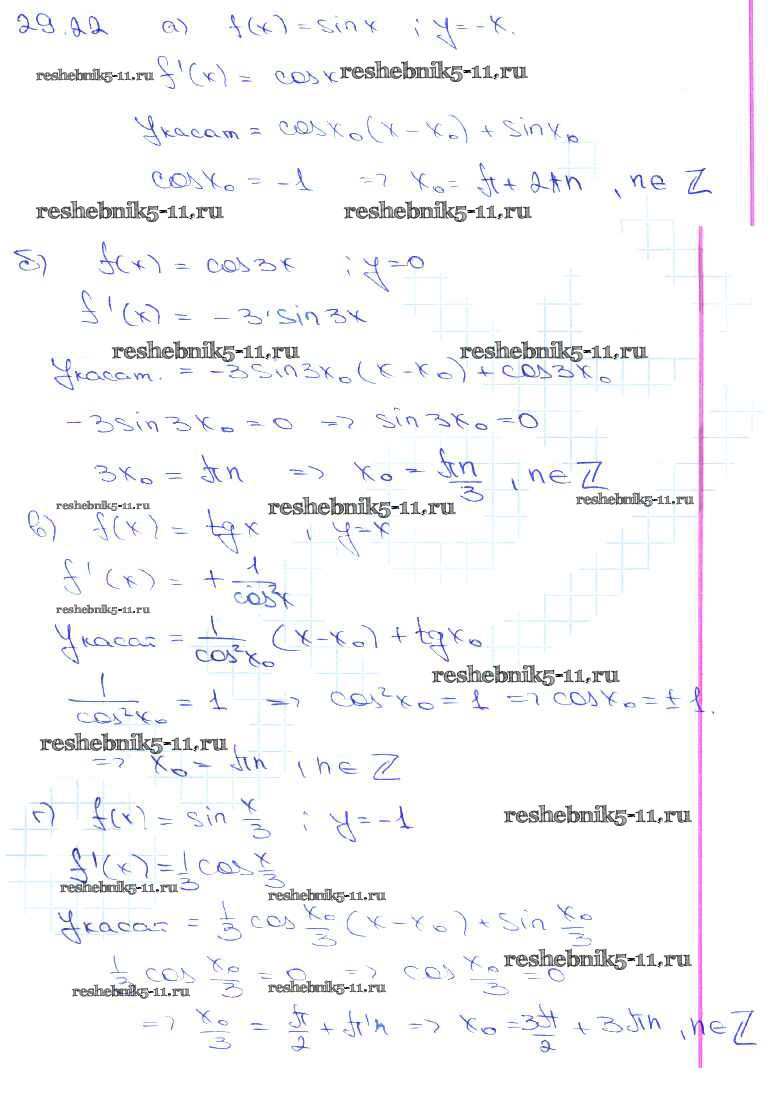 29.22 а) f(x) = sinx ; y=-x.
reshebnik5-11.ru f'(x) = cosx reshebnik5-11.ru
Укасат = cosx₀(x-x₀) + sinx₀
cosx₀ = -1 => x₀ = π + 2πn , n∈ℤ
reshebnik5-11.ru reshebnik5-11.ru
б) f(x) = cos3x ; y=0
f'(x) = -3·sin3x
reshebnik5-11.ru reshebnik5-11.ru
Укасат. = -3sin3x₀(x-x₀) + cos3x₀
-3sin3x₀ = 0 => sin3x₀ = 0
3x₀ = πn => x₀ = πn/3 , n∈ℤ
reshebnik5-11.ru reshebnik5-11.ru reshebnik5-11.ru
в) f(x) = tgx , y=x
f'(x) = + 1/cos²x
reshebnik5-11.ru
Укасат = 1/cos²x₀ (x-x₀) + tgx₀
reshebnik5-11.ru
1/cos²x₀ = 1 => cos²x₀ = 1 => cosx₀ = ±1.
reshebnik5-11.ru
=> x₀ = πn , n∈ℤ
г) f(x) = sin x/3 ; y=-1 reshebnik5-11.ru
f'(x) = 1/3 cos x/3
reshebnik5-11.ru reshebnik5-11.ru
Укасат = 1/3 cos x₀/3 (x-x₀) + sin x₀/3
reshebnik5-11.ru
1/3 cos x₀/3 = 0 => cos x₀/3 = 0
reshebnik5-11.ru reshebnik5-11.ru
=> x₀/3 = π/2 + πn => x₀ = 3π/2 + 3πn , n∈ℤ